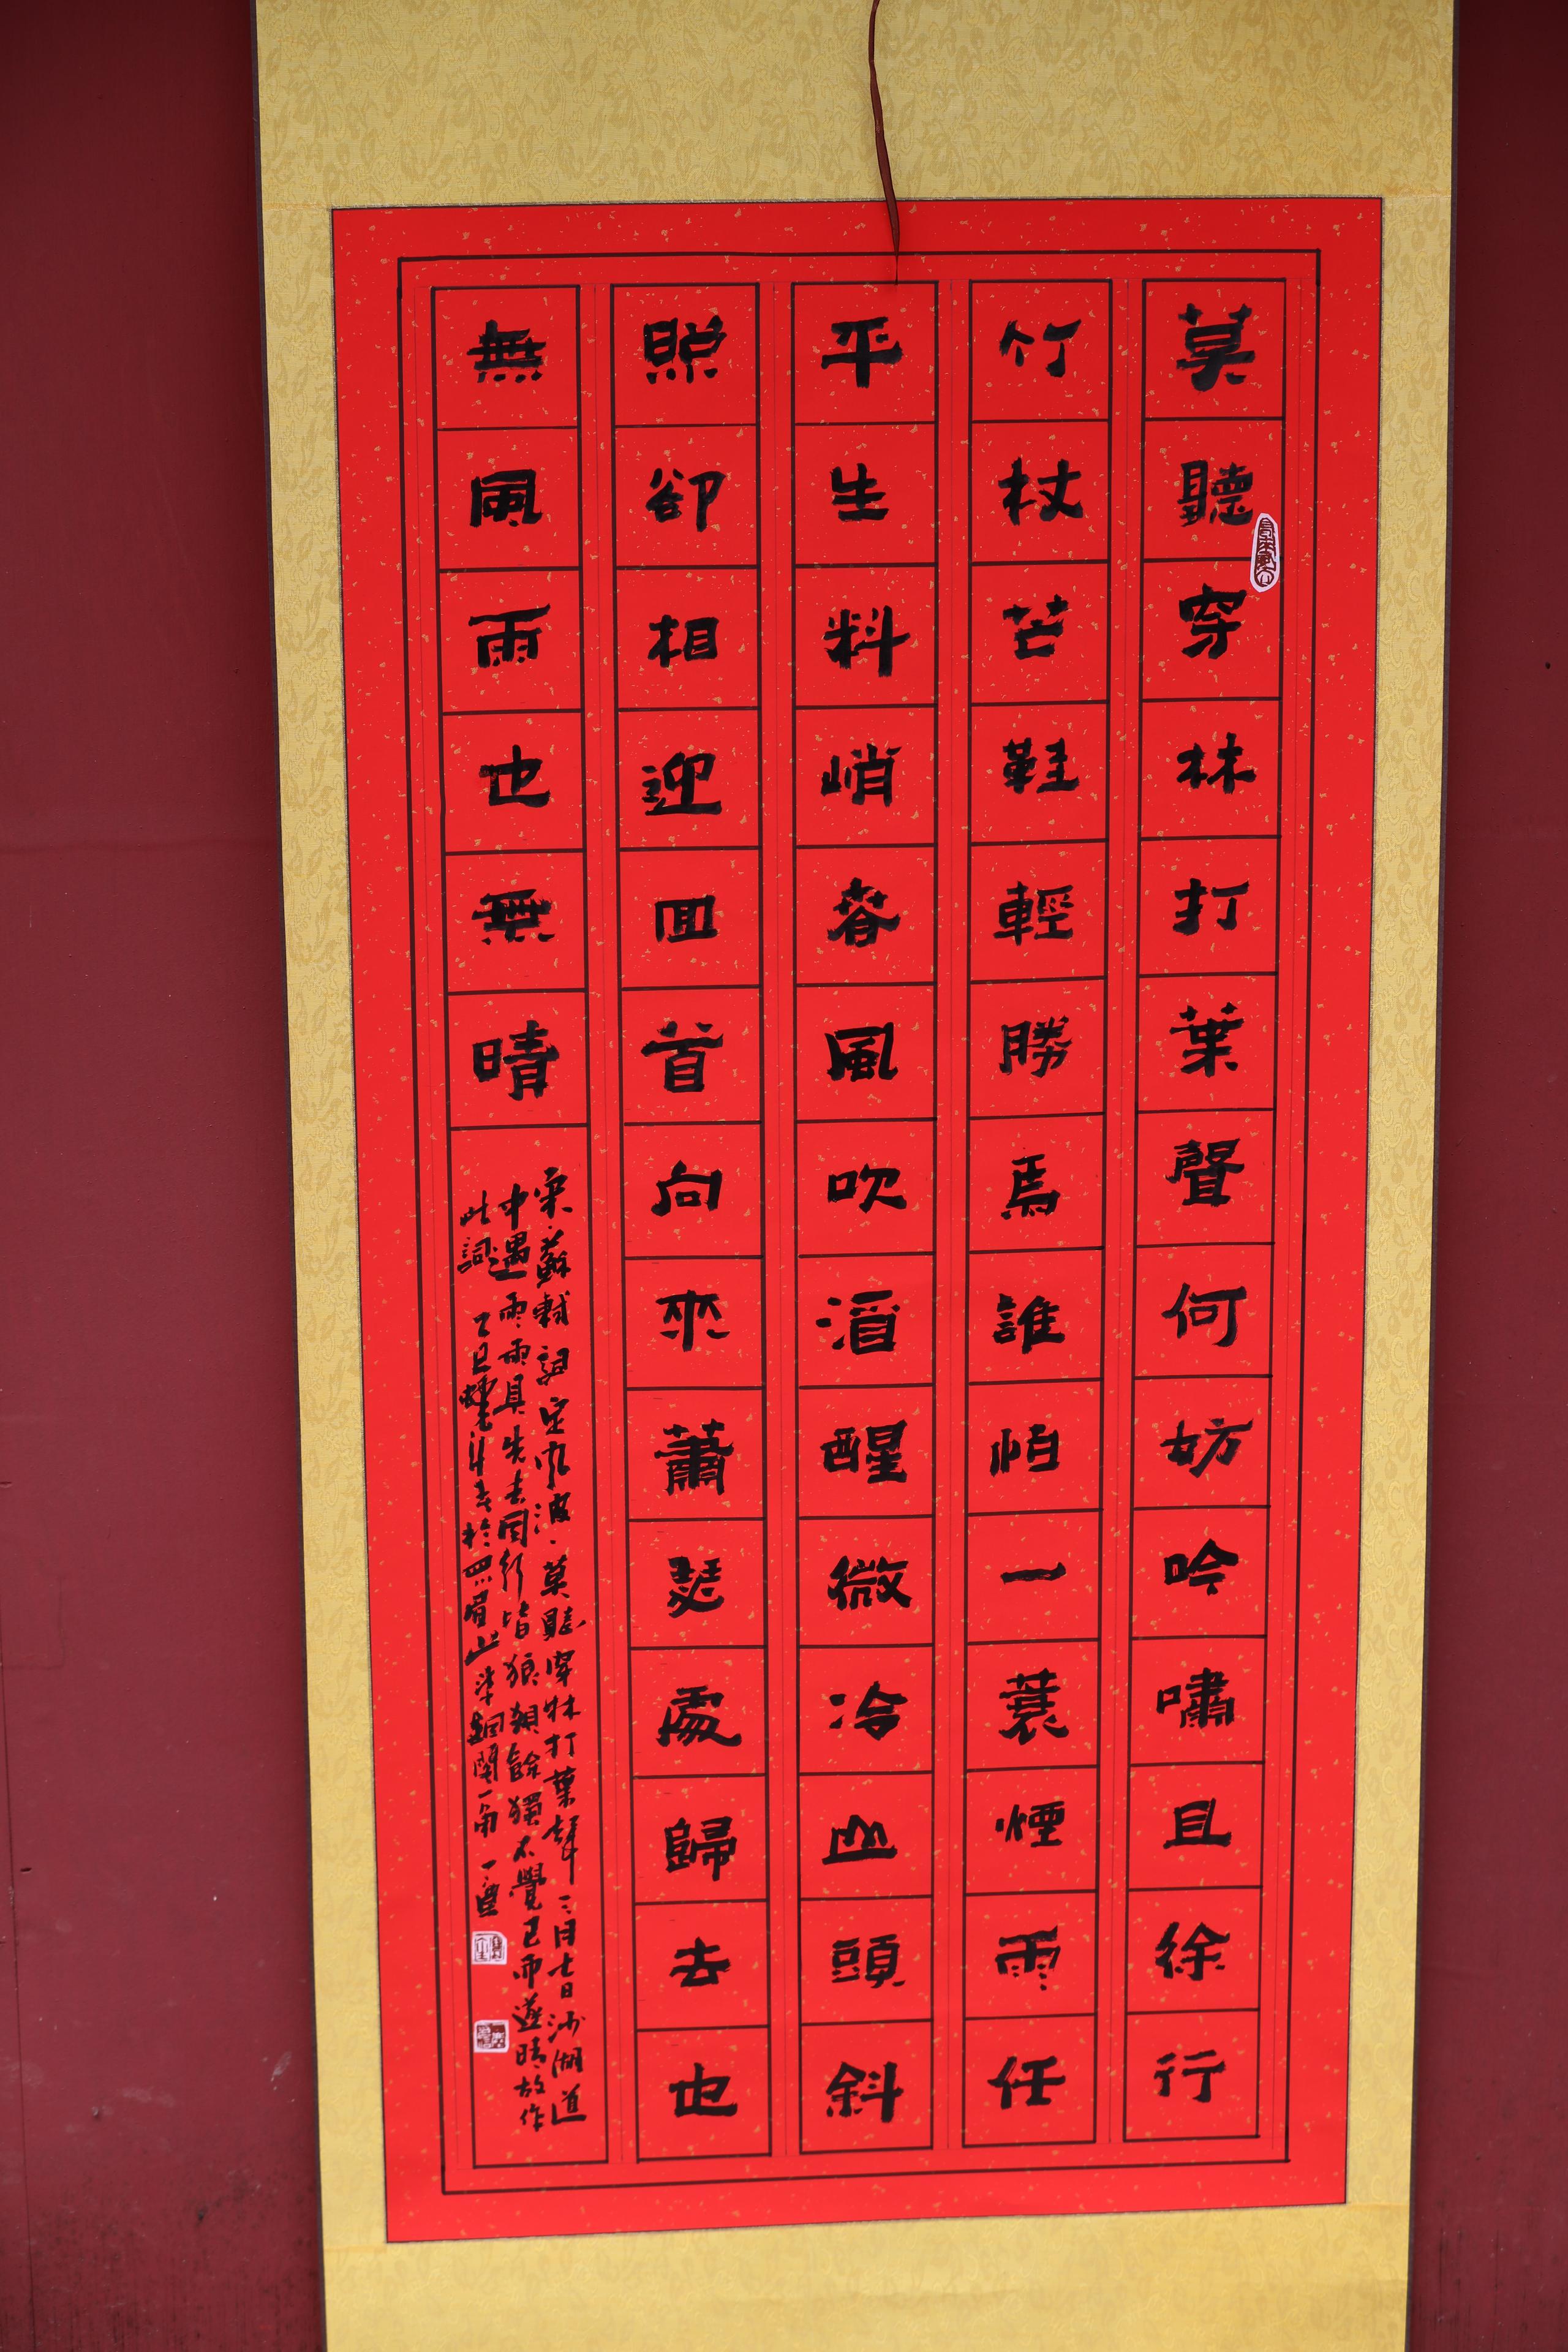 莫聽穿林打葉聲何妨吟嘯且徐行
竹杖芒鞋輕勝馬誰怕一蓑煙雨任
平生料峭春風吹酒醒微冷山頭斜
照卻相迎回首向來蕭瑟處歸去也
無風雨也無晴
宋蘇軾詞定風波莫聽穿林打葉聲三月七日沙湖道
中遇雨雨具先去同行皆狼狽餘獨不覺已而遂晴故作
此詞 乙巳 書於 眉山